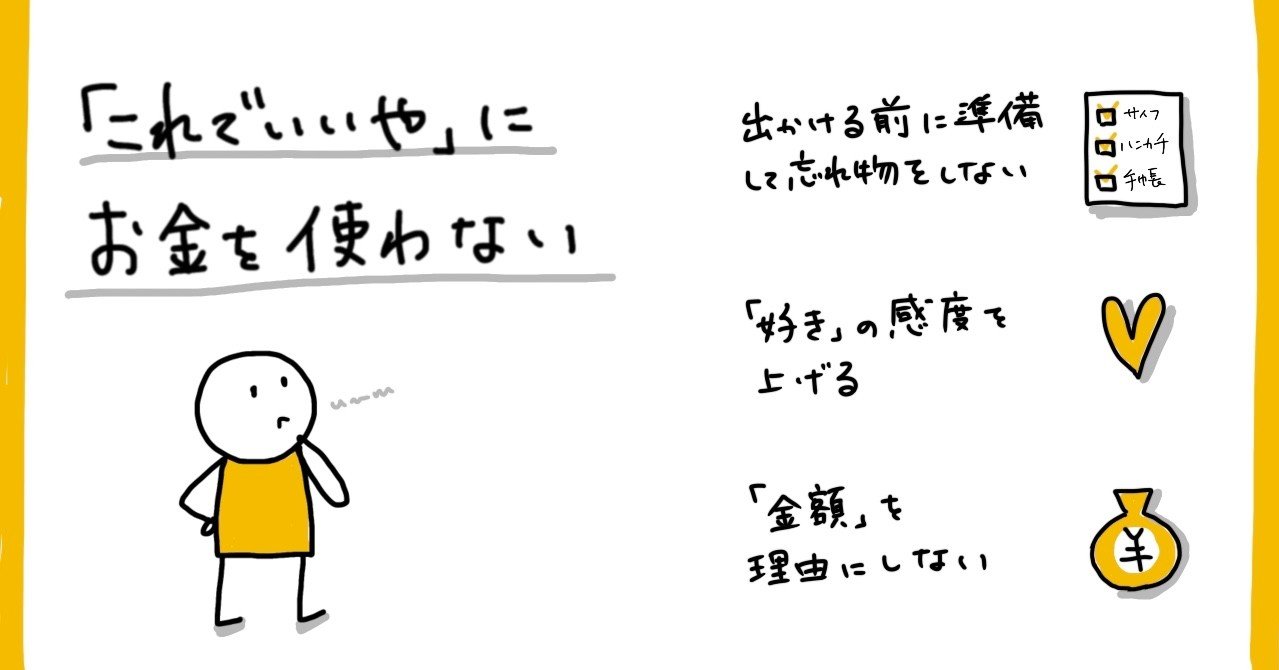 「これでいいや」に
お金を使わない
出かける前に準備
して忘れ物をしない
サイフ
ハンカチ
手帳
「好き」の感度を
上げる
「金額」を
理由にしない
¥